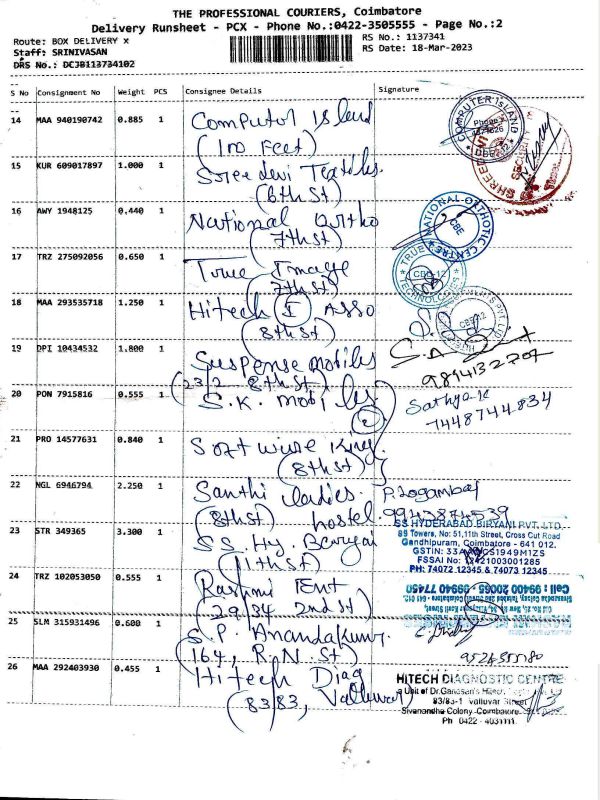 THE PROFESSIONAL COURIERS, Coimbatore
Delivery Runsheet - PCX - Phone No.:0422-3505555 - Page No.:2
Route: BOX DELIVERY x
RS No.: 1137341
Staff: SRINIVASAN
RS Date: 18-Mar-2023
DRS No.: DCJB113734102
S No Consignment No Weight PCS Consignee Details Signature
14 MAA 940190742 0.885 1 Computer Island
(100 Feet)
COMPUTER ISLAND
15 KUR 609017897 1.000 1 Sree devi Textiles.
(6th St)
SECURITY
16 AWY 1948125 0.440 1 National Ortho
(7th St)
NATIONAL ORTHOTIC CENTRE
CBE
17 TRZ 275092056 0.650 1 True Image
(7th St)
TRUE TECHNOLOGIES
CBE-12
18 MAA 293535718 1.250 1 Hitech I Asso
(8th St)
19 DPI 10434532 1.800 1 Suspense mobiles
(232 8th St)
9894132707
20 PON 7915816 0.555 1 S.K. mobiles
Sathya.K
7448744834
21 PRO 14577631 0.840 1 Software King
(8th St)
22 NGL 6946794 2.250 1 Santhi Ladies.
(8th St) hostel
P. Logambal
9943874539
23 STR 349365 3.300 1 S S. Hy. Beryani
(11th St)
SS HYDERABAD BIRYANI PVT. LTD.
89 Towers, No: 51, 11th Street, Cross Cut Road
Gandhipuram, Coimbatore - 641 012.
FSSAI No: 12421003001285
PH: 74072 12345 & 74073 12345
24 TRZ 102053050 0.555 1 Rashmi Ent
(29/34 2nd St)
Cell : 99400 20065 99940 77450
25 SLM 315931496 0.600 1 S.P. Anandakumr
(164, R.N. St)
26 MAA 292403930 0.455 1 Hitech Diag
(83/83, Valluvar)
HITECH DIAGNOSTIC CENTRE
83/83-1 Valluvar Street
Sivanandha Colony, Coimbatore
Ph 0422 - 4031111.